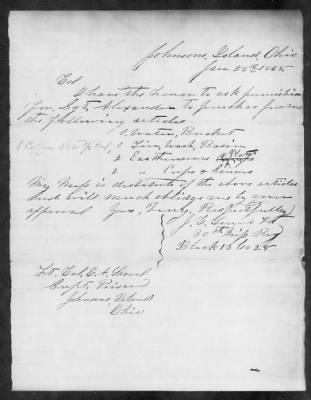 Johnsons, Island, Ohio
Jan 28th 1865
Col
I have the honor to ask permission
for Sgt. Alexander to purchase for me
the following articles
1 Water, Bucket
1 Coffee Pot 1 Tin, Wash, Basin
2 Earthenware Plates
2 " Cups & Saucers
My Mess is destitute of the above articles
and will much oblige me by your
approval Yours, Very, Respectfully
J. C.
30th Reg
Block 13
Lt. Col, E. A. Scovill
Supt, Prison
Johnsons Island
Ohio